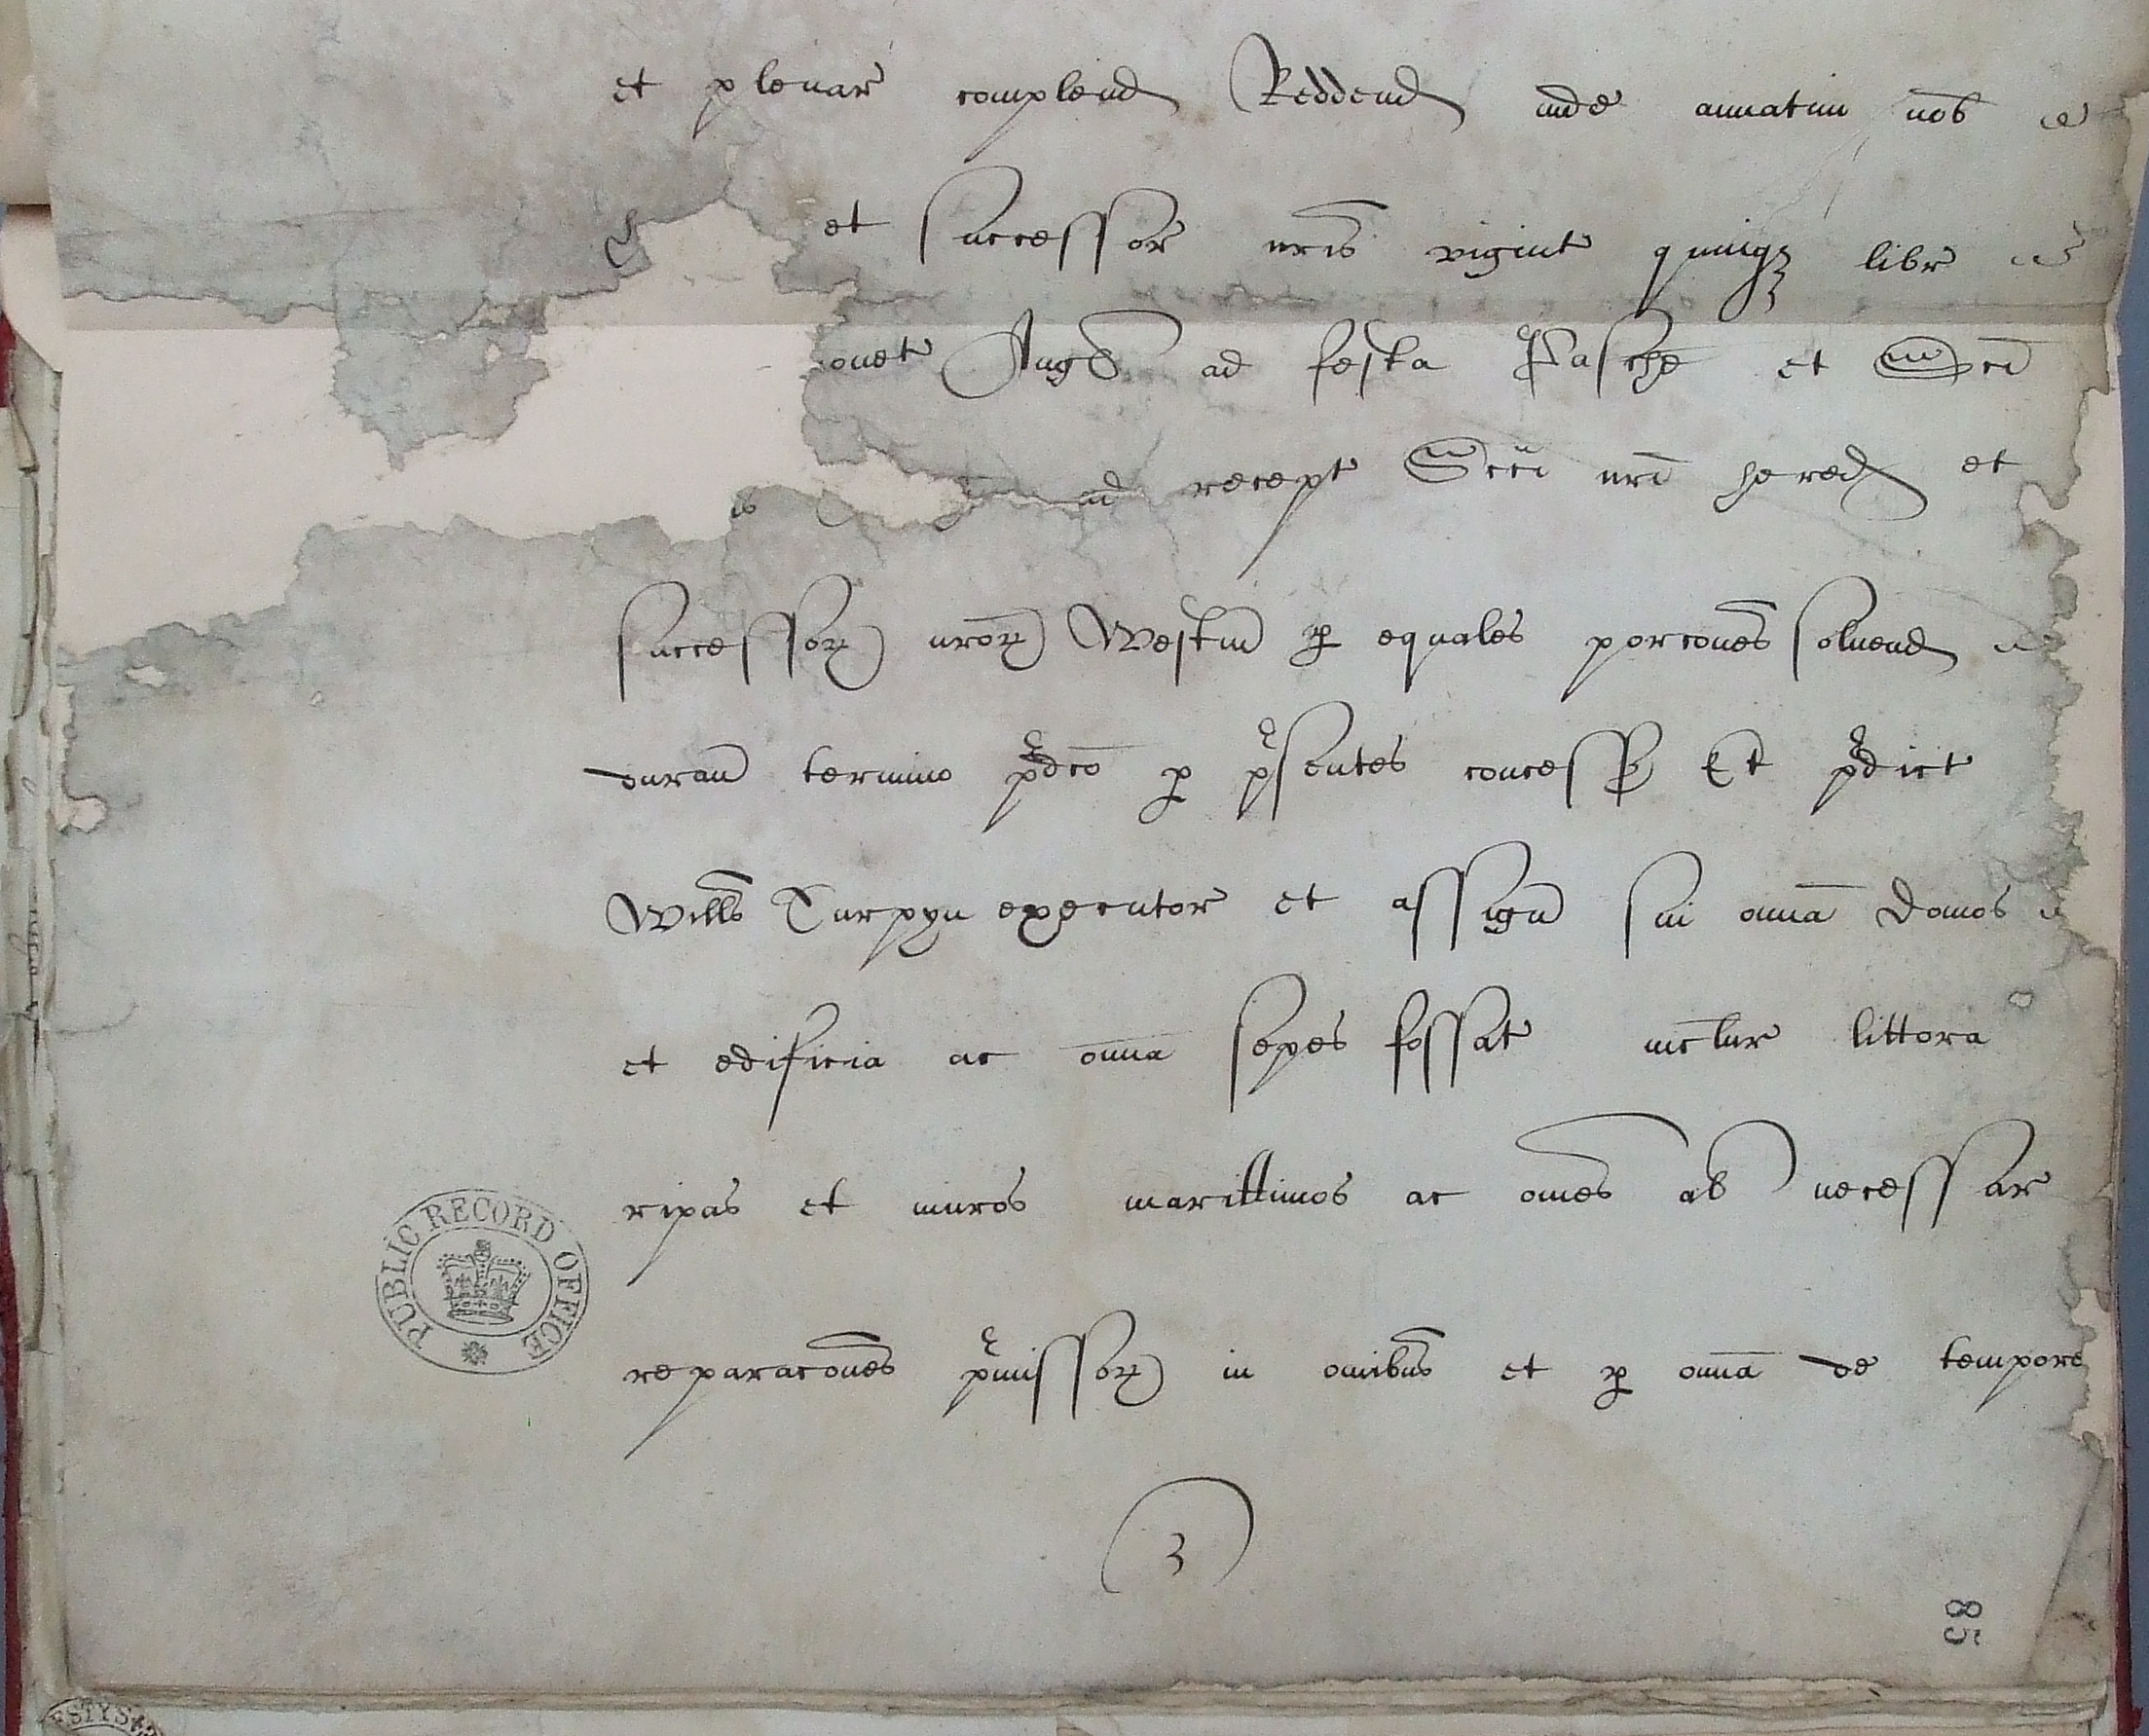 et plenar complend Reddend inde annatim nob
et successor nris vigint quinq libr
onet Angl ad festa Pasche et Sci
ad recept Sccii nri hered et
successor nror Westm p equales porcones solvend
duran termino pdco p psentes concess Et pdict
Willms Turpyn executor et assign sui omia domos
et edificia ac omia sepes fossat littora
ripas et muros marittimos ac omes al necessar
reparacones pmissor in omibus et p omia de tempore
3
85
PUBLIC RECORD OFFICE